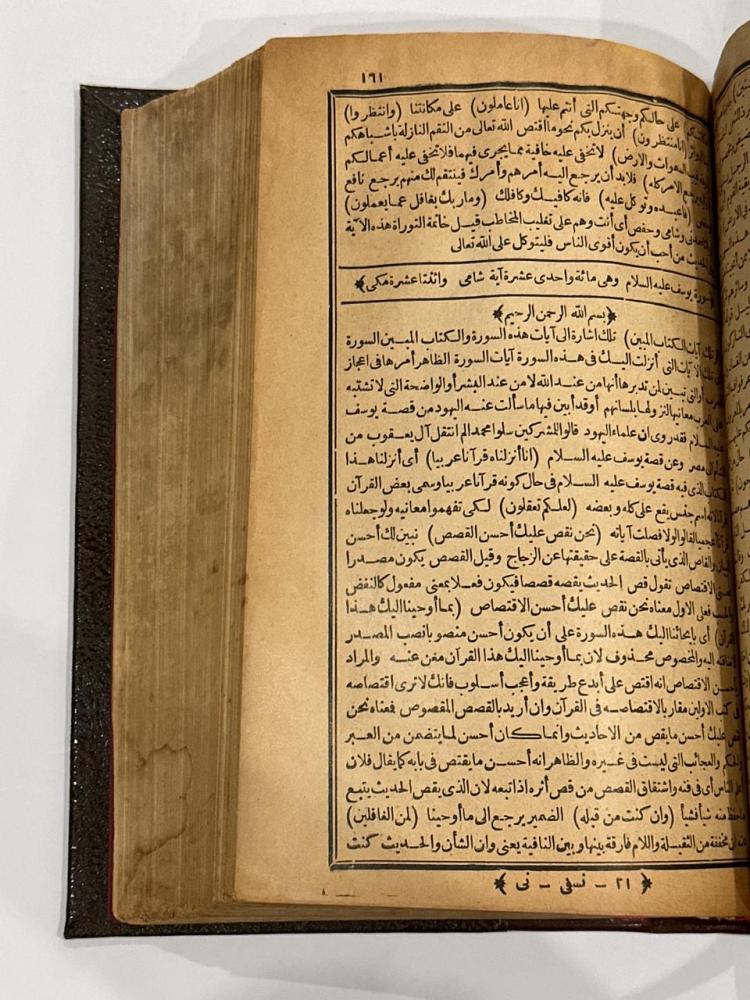 ١٦١
على حالكم وجهتكم التى أنتم عليها (اناعاملون) على مكانتنا (وانتظروا)
(انامنتظرون) أن ينزل بكم نحوما اقتص الله تعالى من النقم النازلة باشباهكم
السموات والارض) لاتخفى عليه خافية مما يجرى فيهما فلاتخفى عليه أعمالكم
الامركله) فلابد أن يرجع اليه أمرهم وأمرك فينتقم لك منهم يرجع نافع
(فاعبده وتوكل عليه) فانه كافيك وكافلك (وماربك بغافل عما يعملون)
وشامى وحفص أى أنت وهم على تغليب المخاطب قيل خاتمة التوراة هذه الآية
من أحب أن يكون أقوى الناس فليتوكل على الله تعالى
سورة يوسف عليه السلام وهى مائة واحدى عشرة آية شامى واثنتاعشرة مكى﴾
﴿بسم الله الرحمن الرحيم﴾
تلك آيات الكتاب المبين) تلك اشارة الى آيات هذه السورة والكتاب المبين السورة
تلك الآيات التى أنزلت اليك فى هذه السورة آيات السورة الظاهر أمرها فى اعجاز
أوالتى تبين لمن تدبرها أنها من عند الله لا من عند البشر أوالواضحة التى لاتشتبه
على العرب معانيها لنزولها بلسانهم أوقد أبين فيها ماسألت عنه اليهود من قصة يوسف
السلام فقد روى ان علماء اليهود قالوا للمشركين سلوا محمدا لم انتقل آل يعقوب من
الى مصر وعن قصة يوسف عليه السلام (انا أنزلناه قرآنا عربيا) أى أنزلنا هذا
الكتاب الذى فيه قصة يوسف عليه السلام فى حال كونه قرآنا عربيا وسمى بعض القرآن
اسم جنس يقع على كله وبعضه (لعلكم تعقلون) لكى تفهموا معانيه ولوجعلناه
أعجميا لقالوا لولا فصلت آياته (نحن نقص عليك أحسن القصص) نبين لك أحسن
والقاص الذى يأتى بالقصة على حقيقتها عن الزجاج وقيل القصص يكون مصدرا
الاقتصاص تقول قص الحديث يقصه قصصا فيكون فعلا بمعنى مفعول كالنفض
فعلى الاول معناه نحن نقص عليك أحسن الاقتصاص (بما أوحينا اليك هذا
القرآن) أى بايحائنا اليك هذه السورة على أن يكون أحسن منصوبا نصب المصدر
لاضافته اليه والمخصوص محذوف لان بما أوحينا اليك هذا القرآن مغن عنه والمراد
بأحسن الاقتصاص انه اقتص على أبدع طريقة وأعجب أسلوب فانك لاترى اقتصاصه
فى كتب الاولين مقاربا لاقتصاصه فى القرآن وان أريد بالقصص المقصوص فمعناه نحن
نقص عليك أحسن ما يقص من الاحاديث وانما كان أحسن لما يتضمن من العبر
والحكم والعجائب التى ليست فى غيره والظاهر انه أحسن ما يقتص فى بابه كما يقال فلان
الناس أى فى فنه واشتقاق القصص من قص أثره اذا تبعه لان الذى يقص الحديث يتبع
ماحفظ منه شيأ فشيأ (وان كنت من قبله) الضمير يرجع الى ما أوحينا (لمن الغافلين)
مخففة من الثقيلة واللام فارقة بينها وبين النافية يعنى وان الشأن والحديث كنت
﴿٢١ - نسفى - نى﴾